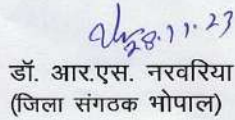 28.11.23
डॉ. आर.एस. नरवरिया
(जिला संगठक भोपाल)